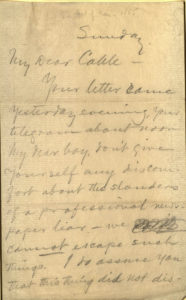 Sunday
My Dear Cable —
Your letter came
yesterday evening, your
telegram about noon
My dear boy, don't give
yourself any discom-
fort about the slanders
of a professional news-
paper liar — we
cannot escape such
things. I do assure you
that this thing did not dis-